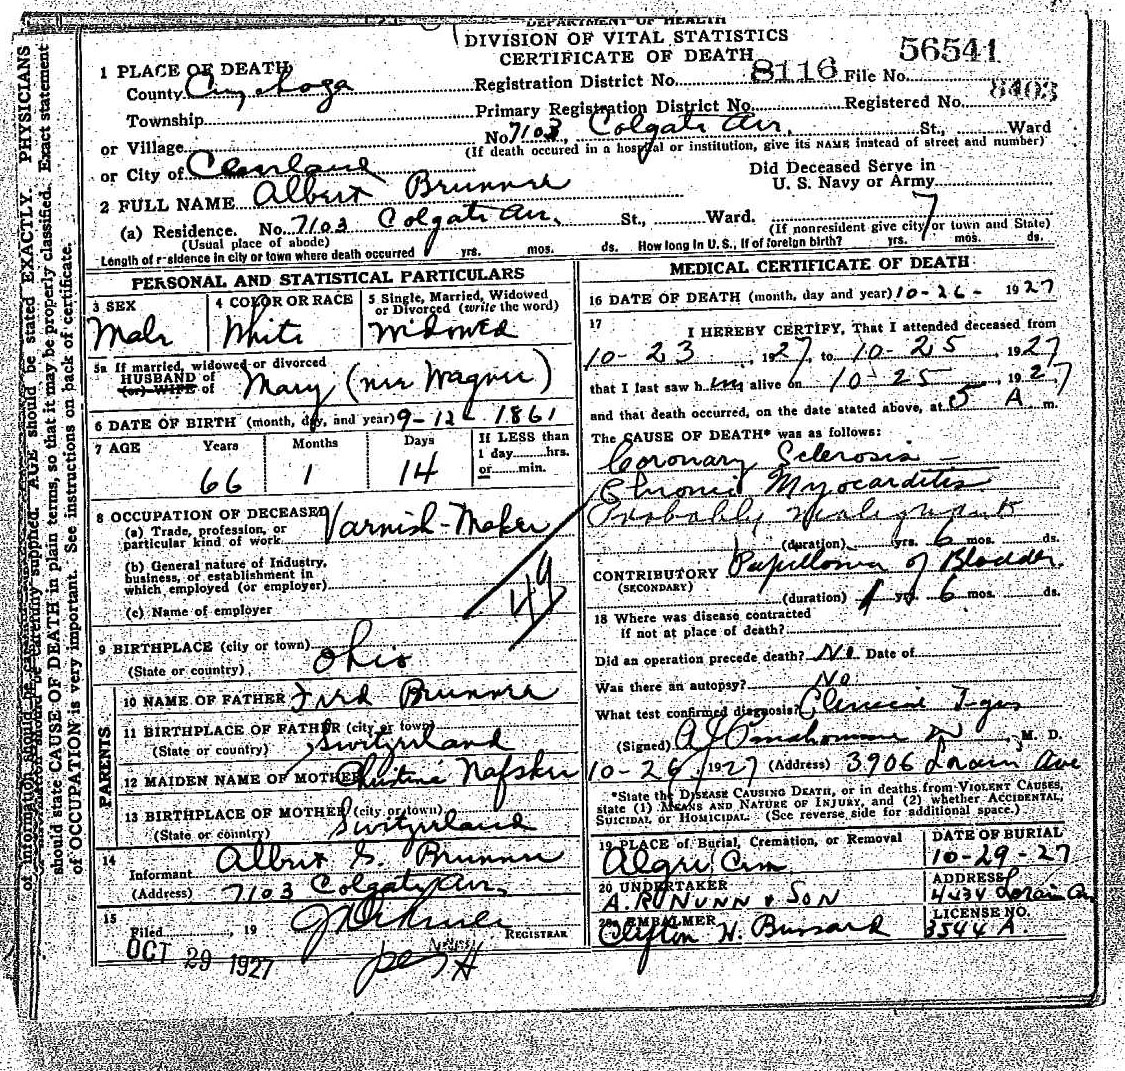 DEPARTMENT OF HEALTH
DIVISION OF VITAL STATISTICS
CERTIFICATE OF DEATH
56541
1 PLACE OF DEATH
County Cuyahoga
Registration District No. 8116 File No.
Township
Primary Registration District No. Registered No. 8403
or Village
No. 7103, Colgate Av. St., Ward
(If death occured in a hospital or institution, give its NAME instead of street and number)
or City of Cleveland
Did Deceased Serve in
U. S. Navy or Army
2 FULL NAME Albert Brunner
(a) Residence. No. 7103 Colgate Av. St., Ward.
(Usual place of abode)
(If nonresident give city or town and State)
Length of residence in city or town where death occurred yrs. mos. ds. How long in U. S., If of foreign birth? yrs. mos. ds.
PERSONAL AND STATISTICAL PARTICULARS
3 SEX
Male
4 COLOR OR RACE
White
5 Single, Married, Widowed
or Divorced (write the word)
Widowed
5a If married, widowed or divorced
HUSBAND of
(or) WIFE of
Mary (nee Wagner)
6 DATE OF BIRTH (month, day, and year) 9-12 1861
7 AGE Years Months Days
66 1 14
If LESS than
1 day hrs.
or min.
8 OCCUPATION OF DECEASED
(a) Trade, profession, or
particular kind of work Varnish-Maker
(b) General nature of Industry,
business, or establishment in
which employed (or employer)
(c) Name of employer
9 BIRTHPLACE (city or town)
(State or country) Ohio
PARENTS
10 NAME OF FATHER Fred Brunner
11 BIRTHPLACE OF FATHER (city or town)
(State or country) Switzerland
12 MAIDEN NAME OF MOTHER Christine
13 BIRTHPLACE OF MOTHER (city or town)
(State or country) Switzerland
14
Informant Albert G. Brunner
(Address) 7103 Colgate Av.
15
Filed , 19
REGISTRAR
OCT 29 1927
MEDICAL CERTIFICATE OF DEATH
16 DATE OF DEATH (month, day and year) 10-26- 1927
17
I HEREBY CERTIFY, That I attended deceased from
10-23, 1927, to 10-25, 1927
that I last saw him alive on 10-25, 1927
and that death occurred, on the date stated above, at 5 A m.
The CAUSE OF DEATH* was as follows:
Coronary Sclerosis –
Chronic Myocarditis
Probably malignant
(duration) yrs. 6 mos. ds.
CONTRIBUTORY Papilloma of Bladder.
(SECONDARY)
(duration) 1 yrs. 6 mos. ds.
18 Where was disease contracted
if not at place of death?
Did an operation precede death? No Date of
Was there an autopsy? No.
What test confirmed diagnosis? Clinical Signs
(Signed) M. D.
10-26, 1927 (Address) 3906 Lorain Ave
*State the DISEASE CAUSING DEATH, or in deaths from VIOLENT CAUSES,
state (1) MEANS AND NATURE OF INJURY, and (2) whether ACCIDENTAL,
SUICIDAL or HOMICIDAL. (See reverse side for additional space.)
19 PLACE of Burial, Cremation, or Removal
Alger Cem
DATE OF BURIAL
10-29-27
20 UNDERTAKER
A. R. NUNN & SON
ADDRESS
4534 Lorain Av
EMBALMER
Clifton H. Bussard
LICENSE NO.
3544 A.